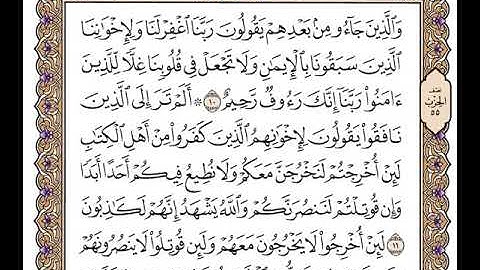 وَٱلَّذِينَ جَآءُو مِنۢ بَعْدِهِمْ يَقُولُونَ رَبَّنَا ٱغْفِرْ لَنَا وَلِإِخْوَٰنِنَا
ٱلَّذِينَ سَبَقُونَا بِٱلْإِيمَٰنِ وَلَا تَجْعَلْ فِى قُلُوبِنَا غِلًّا لِّلَّذِينَ
ءَامَنُوا۟ رَبَّنَآ إِنَّكَ رَءُوفٌ رَّحِيمٌ ١٠ ۞ أَلَمْ تَرَ إِلَى ٱلَّذِينَ
نَافَقُوا۟ يَقُولُونَ لِإِخْوَٰنِهِمُ ٱلَّذِينَ كَفَرُوا۟ مِنْ أَهْلِ ٱلْكِتَٰبِ
لَئِنْ أُخْرِجْتُمْ لَنَخْرُجَنَّ مَعَكُمْ وَلَا نُطِيعُ فِيكُمْ أَحَدًا أَبَدًا
وَإِن قُوتِلْتُمْ لَنَنصُرَنَّكُمْ وَٱللَّهُ يَشْهَدُ إِنَّهُمْ لَكَٰذِبُونَ
١١ لَئِنْ أُخْرِجُوا۟ لَا يَخْرُجُونَ مَعَهُمْ وَلَئِن قُوتِلُوا۟ لَا يَنصُرُونَهُمْ
نصف
الحزب
٥٥